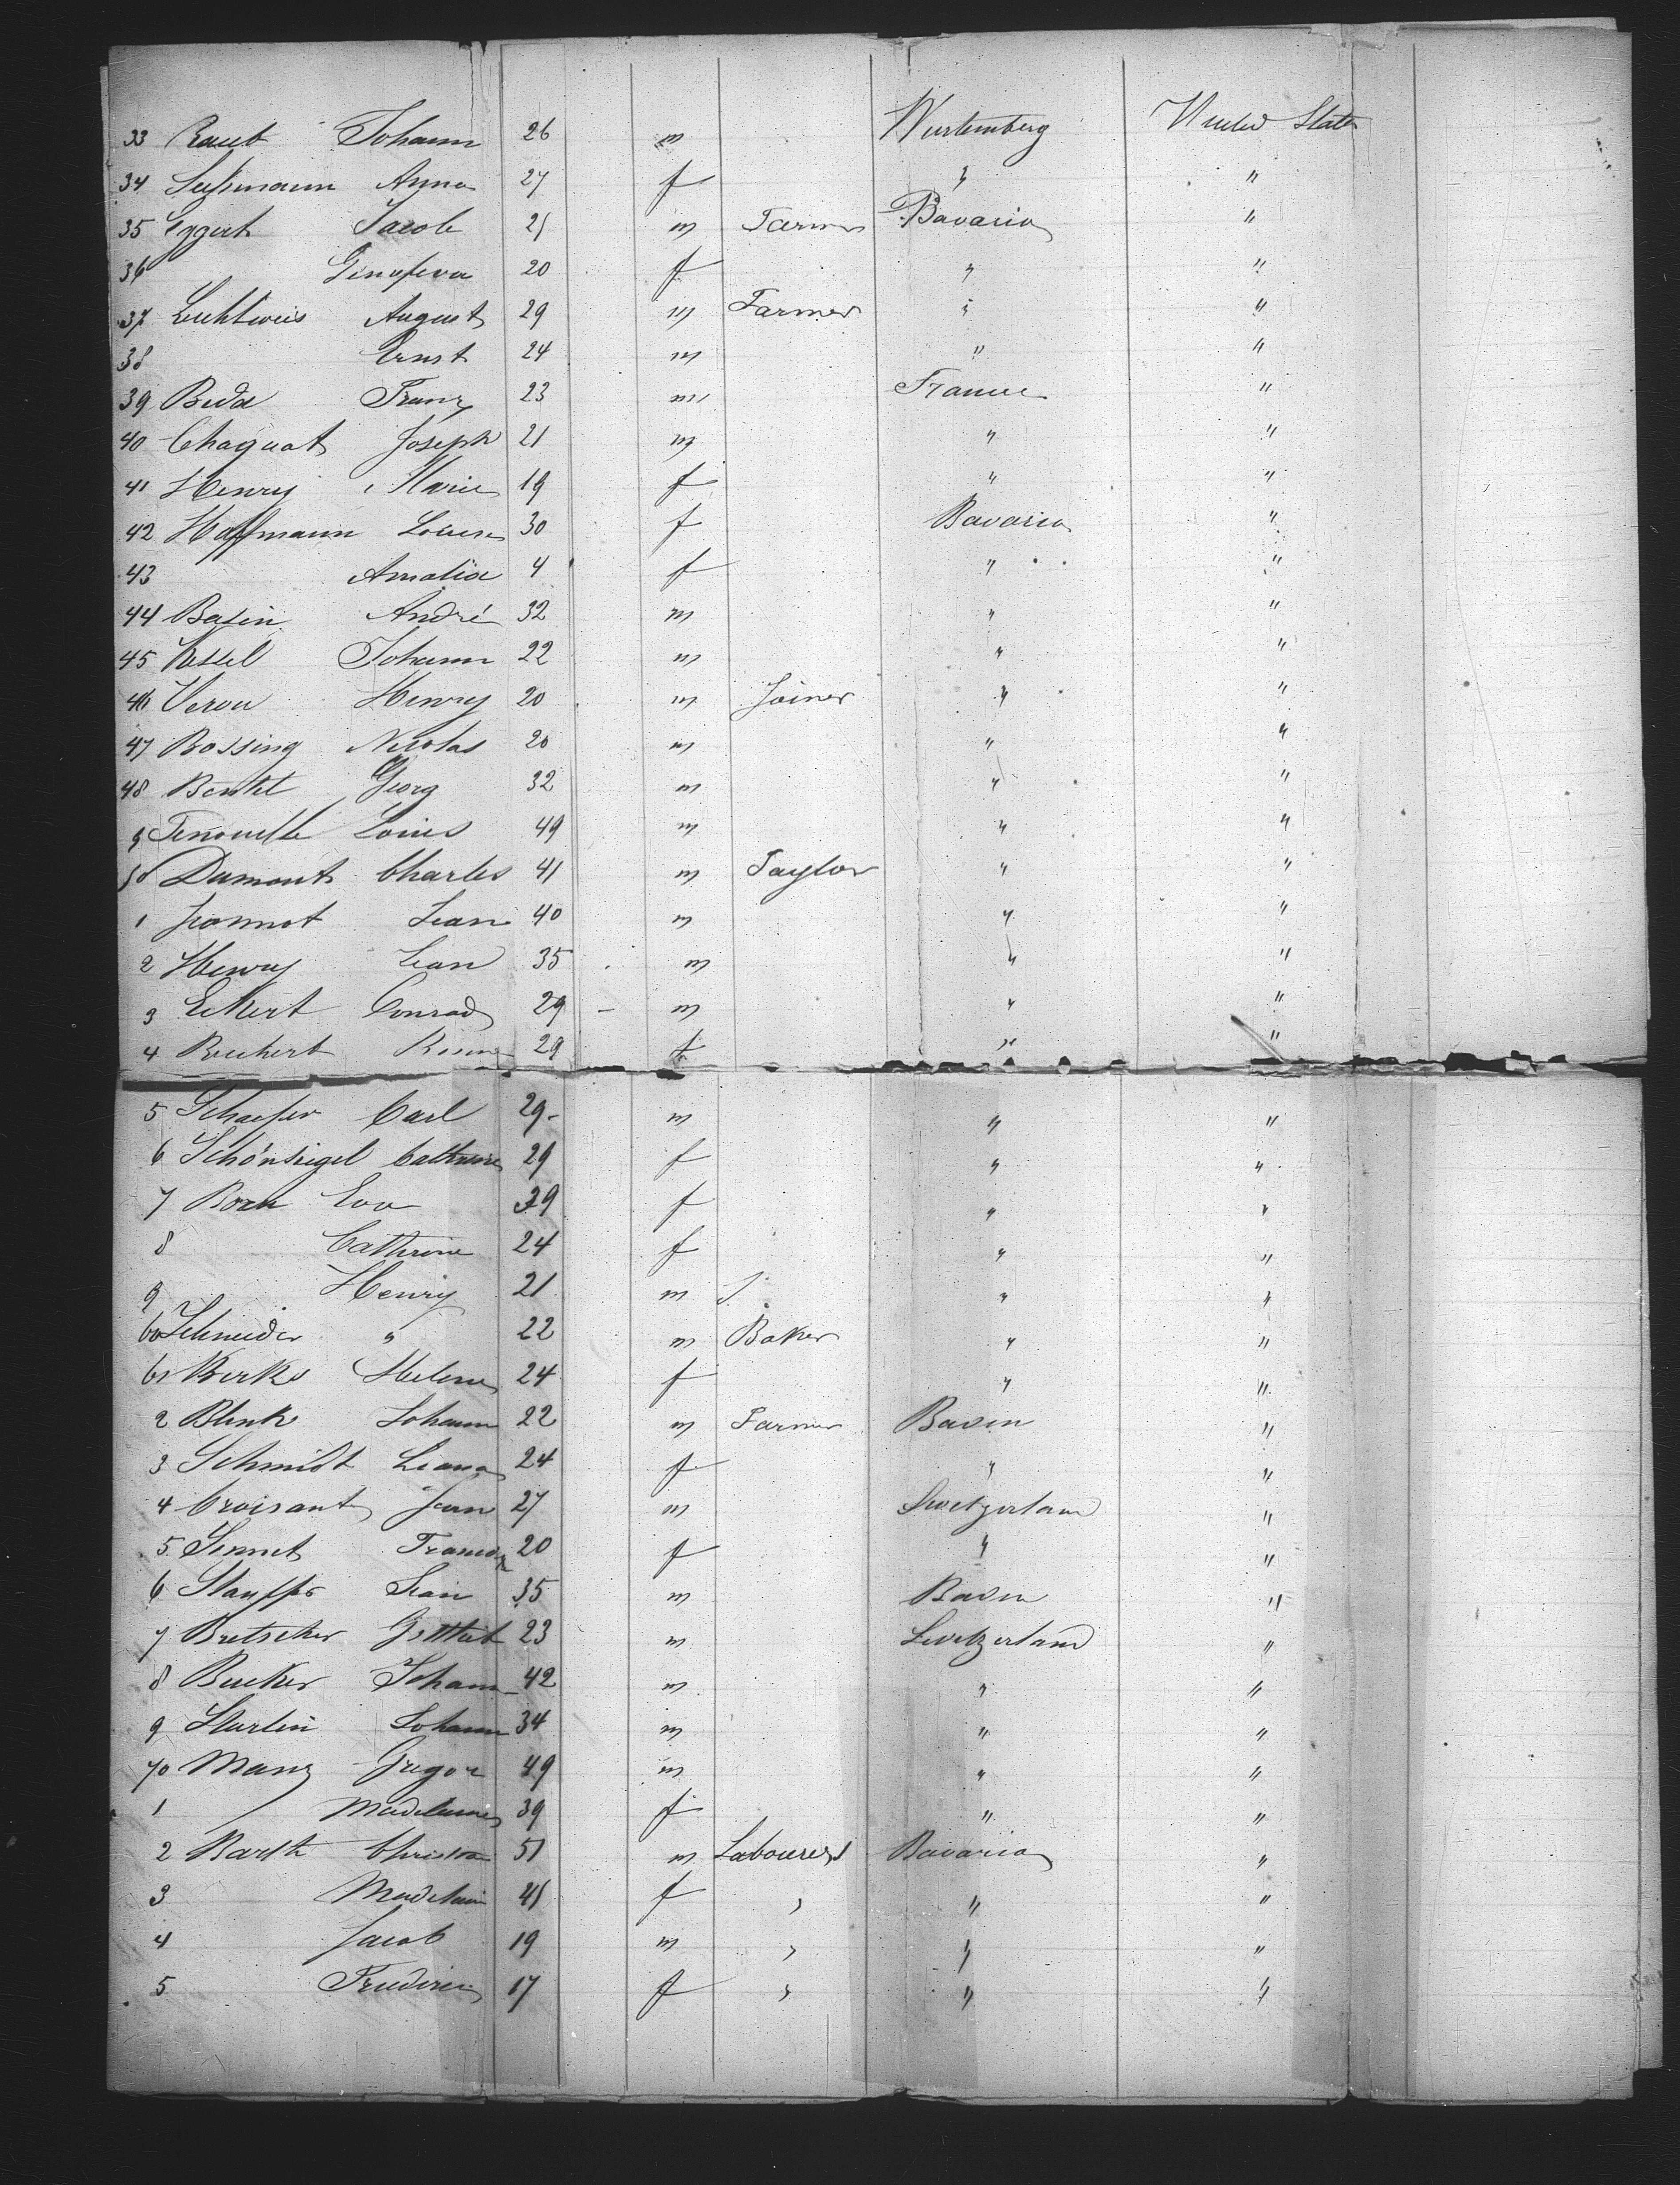 33 Raub Johann 26 m Wurtemberg United States
34 Anna 27 f " "
35 Eggert Jacob 21 m Farmer Bavaria "
36 Genofeva 20 f " "
37 August 29 m Farmer " "
38 Ernst 24 m " "
39 Beda Franz 23 m France "
40 Chaquot Joseph 21 m " "
41 Henry Marie 19 f " "
42 Hoffmann Louise 30 f Bavaria "
43 Amalia 4 f " "
44 Basin André 32 m " "
45 Kessel Johann 22 m " "
46 Veron Henry 20 m Joiner " "
47 Bossing Nicolas 20 m " "
48 Georg 32 m " "
9 Louis 49 m " "
50 Dumont Charles 41 m Taylor " "
1 Jeannot Jean 40 m " "
2 Henry Jean 35 m " "
3 Eckert Conrad 29 m " "
4 29 f " "
5 Schaefer Carl 29 m " "
6 Schönsiegel Cathrine 29 f " "
7 Born Eva 39 f " "
8 Cathrine 24 f " "
9 Henry 21 m " "
60 Schneider " 22 m Baker " "
61 Berks Helene 24 f " "
2 Blink Johann 22 m Farmer Baden "
3 Schmidt 24 f " "
4 Croisant Jean 27 m Switzerland "
5 20 f " "
6 Stauffer Jean 35 m Baden "
7 Bretscher Gottlieb 23 m Switzerland "
8 Johann 42 m " "
9 Johann 34 m " "
70 Manz Gregor 49 m " "
1 Madelaine 39 f " "
2 Barth 51 m Labourers Bavaria "
3 Madelain 41 f " " "
4 Jacob 19 m " " "
5 17 f " " "